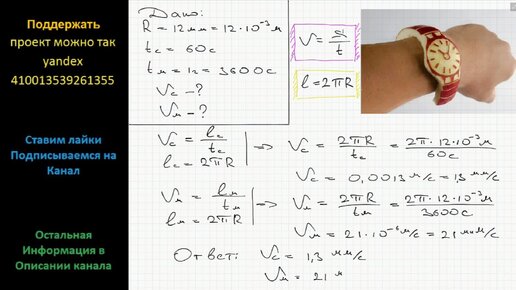 Поддержать
проект можно так
yandex
410013539261355
Ставим лайки
Подписываемся на
Канал
Остальная
Информация в
Описании канала
Дано:
R = 12мм = 12·10⁻³м
tc = 60c
tм = 1ч = 3600c
Vc - ?
Vм - ?
V = S/t
l = 2πR
Vc = lc/tc
lc = 2πR
=> Vc = 2πR/tc = 2π·12·10⁻³м/60c
Vc = 0,0013 м/c = 1,3 мм/c
Vм = lм/tм
lм = 2πR
=> Vм = 2πR/tм = 2π·12·10⁻³м/3600c
Vм = 21·10⁻⁶м/c = 21 мкм/c
Ответ: Vc = 1,3 мм/c
Vм = 21 м